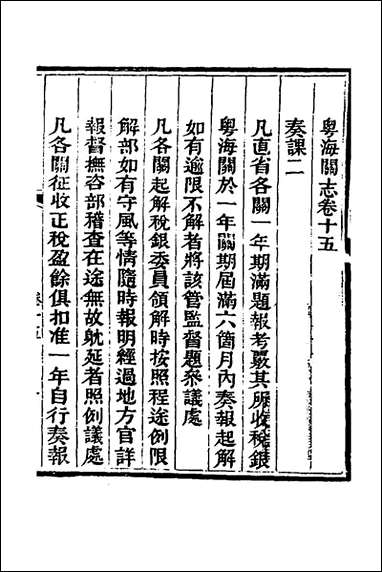 粵海關志卷十五
奏課二
凡直省各關一年期滿題報考覈其所收稅銀
粵海關於一年關期屆滿六箇月內奏報起解
如有逾限不解者將該管監督題叅議處
凡各關起解稅銀委員領解時按照程途例限
解部如有守風等情隨時報明經過地方官詳
報督撫咨部稽查在途無故躭延者照例議處
凡各關征收正稅盈餘俱扣准一年自行奏報